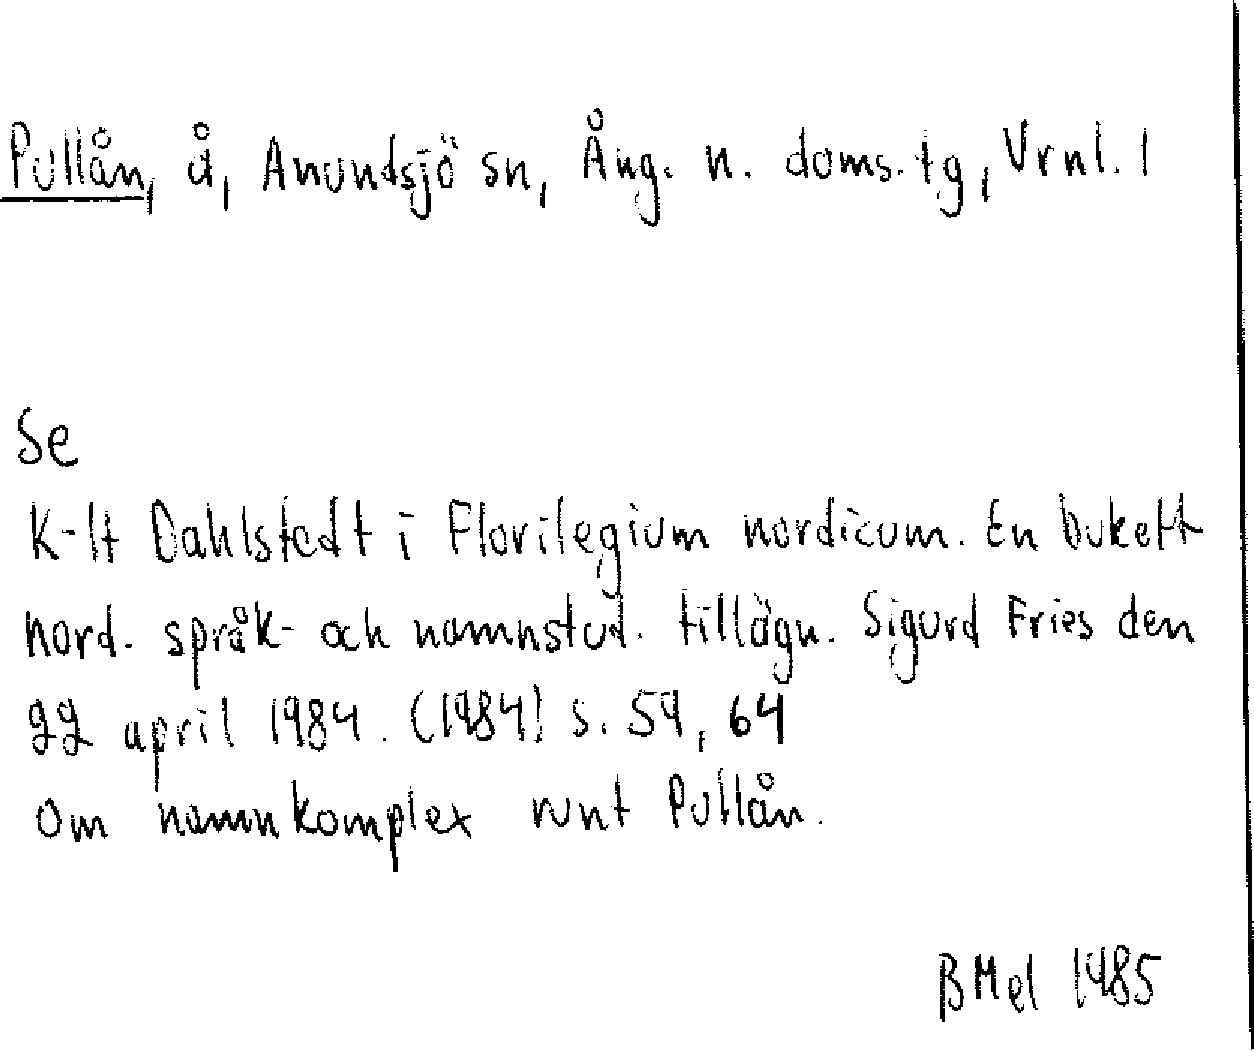 Pullån, å, Anundsjö sn, Ång. n. doms. tg, Vrnl. l
Se
K-H Dahlstedt i Florilegium nordicum. En bukett
nord. språk- och namnstud. tillägn. Sigurd Fries den
22 april 1984. (1984) s. 59, 64
Om namnkomplex runt Pullån.
BMel 1985